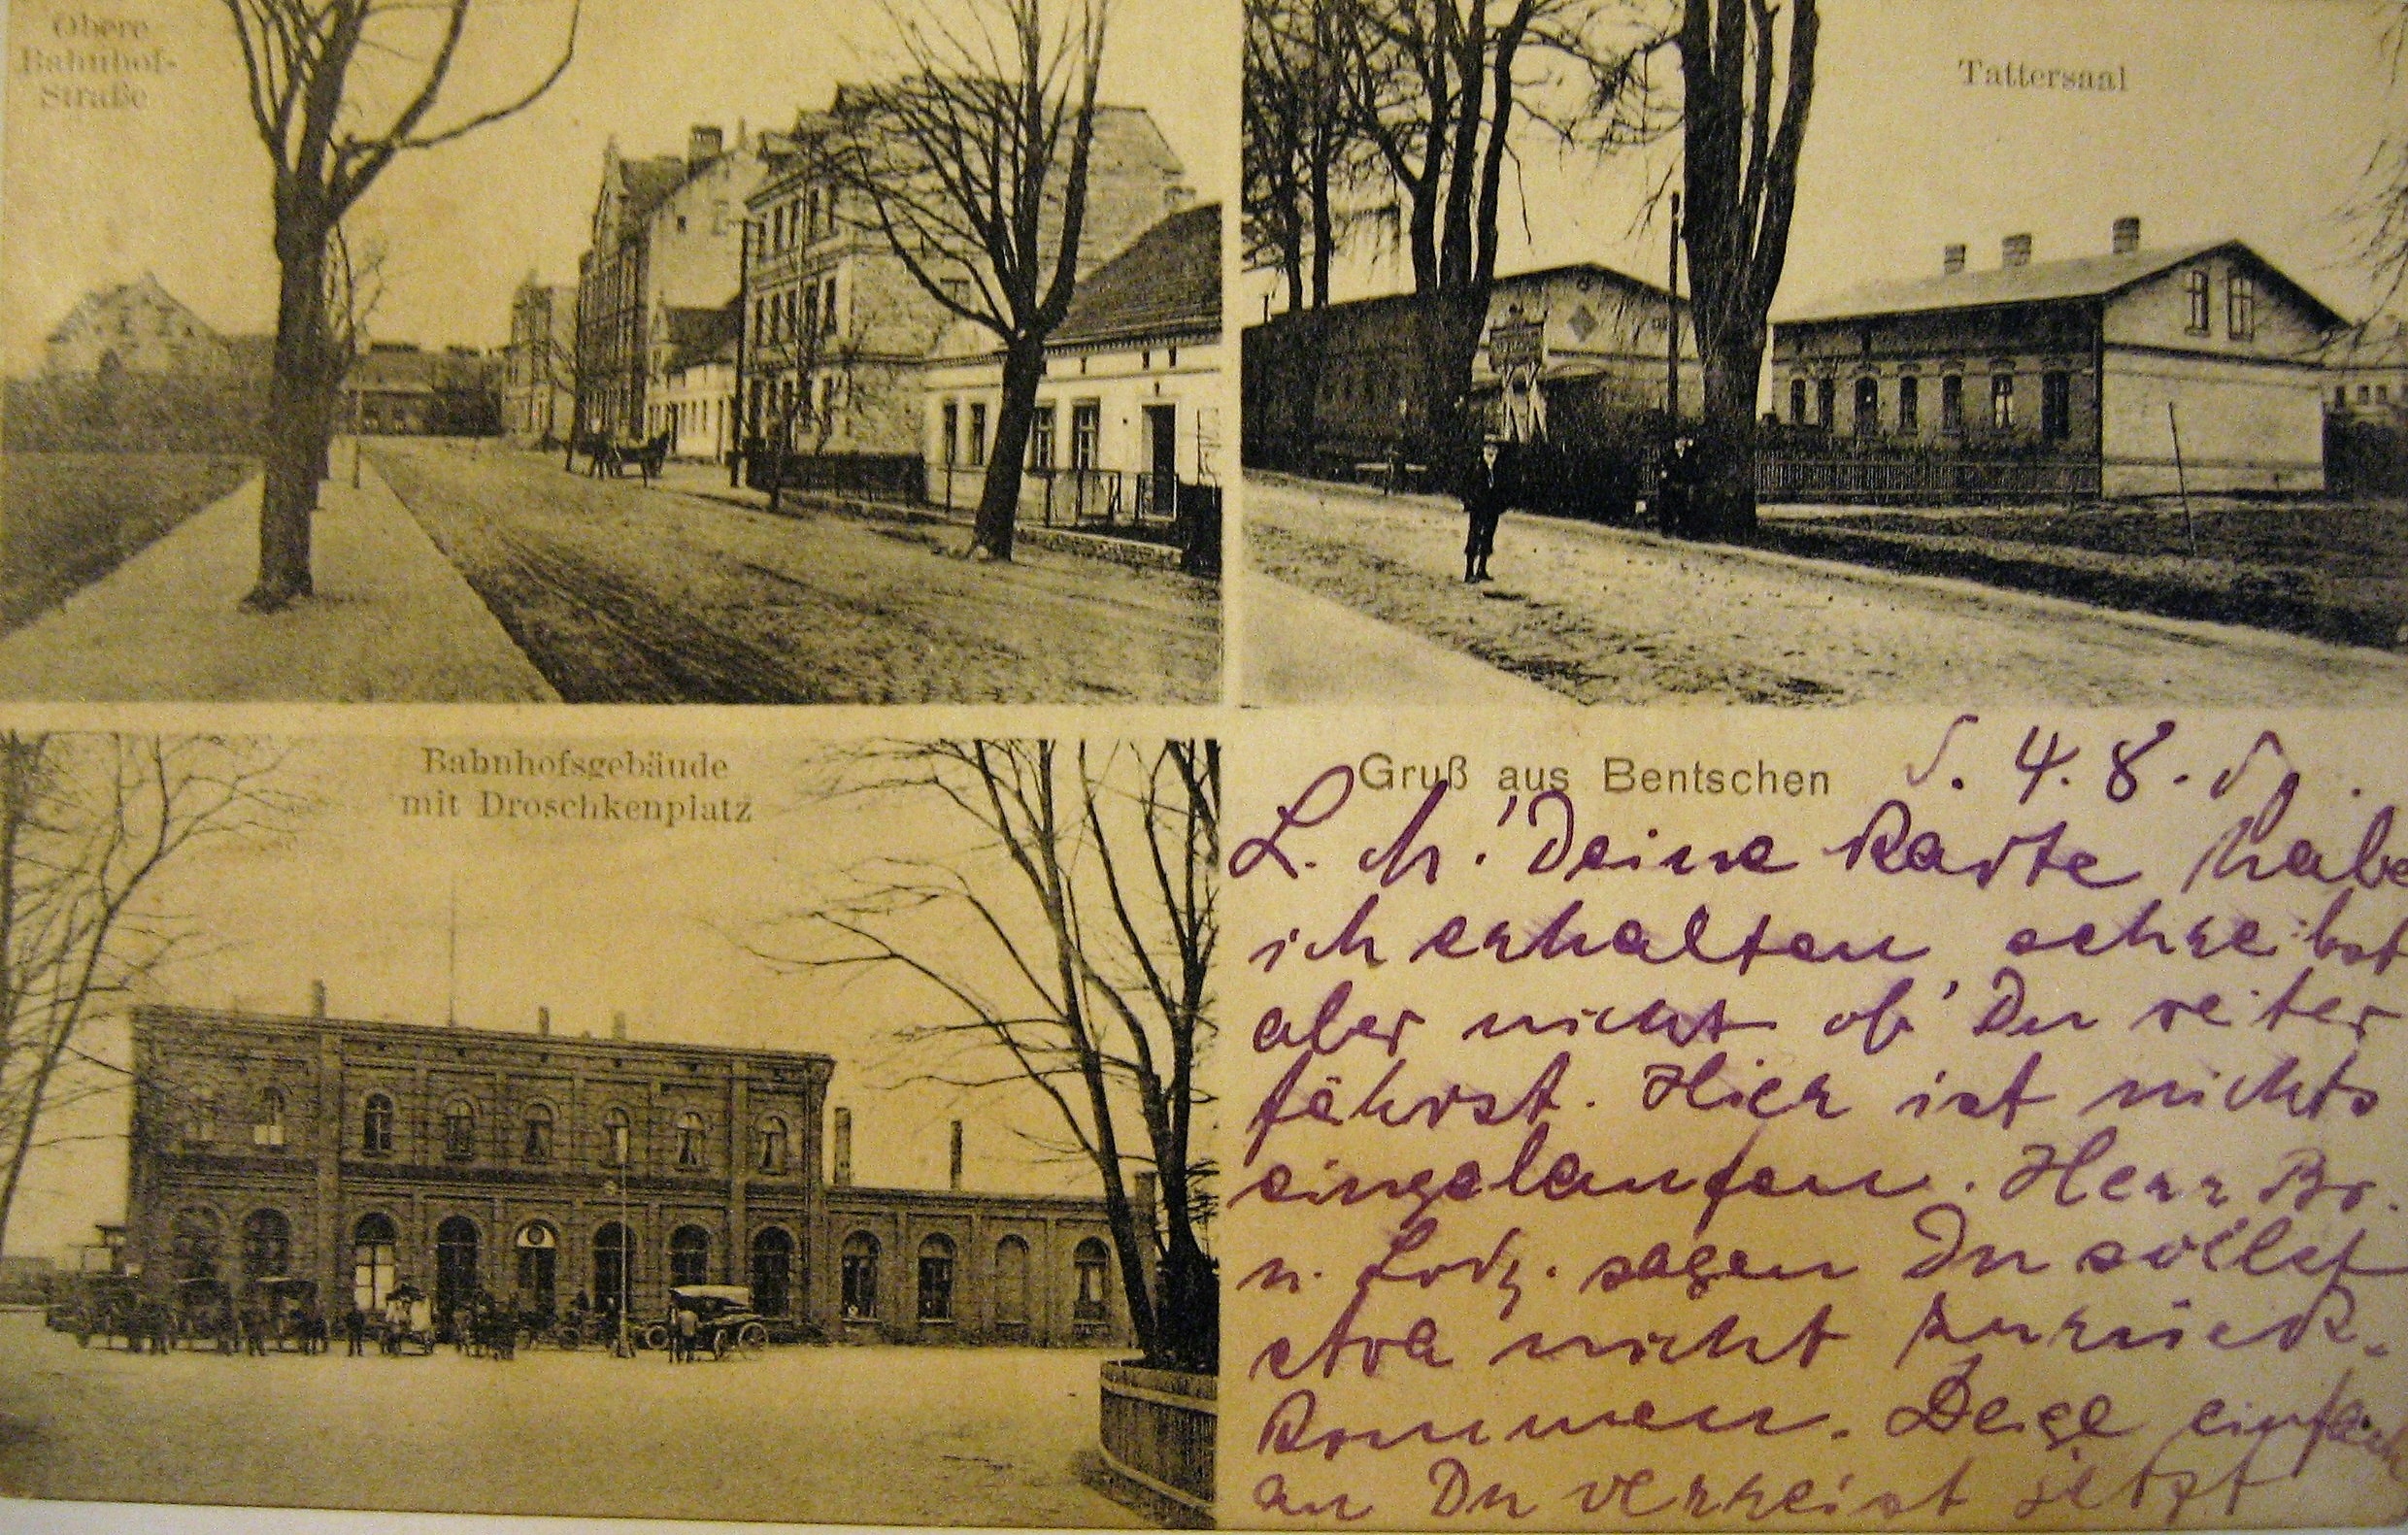 Obere
Bahnhof-
Straße
Tattersaal
Bahnhofsgebäude
mit Droschkenplatz
Gruß aus Bentschen
4. 8.
L. M! Deine Karte habe
ich erhalten, schreibst
aber nicht ob Du
fährst. Hier ist nichts
eingelaufen. Herr Br.
u. sagen Du sollst
nicht zurück-
kommen. einfach
an Du verreist jetzt